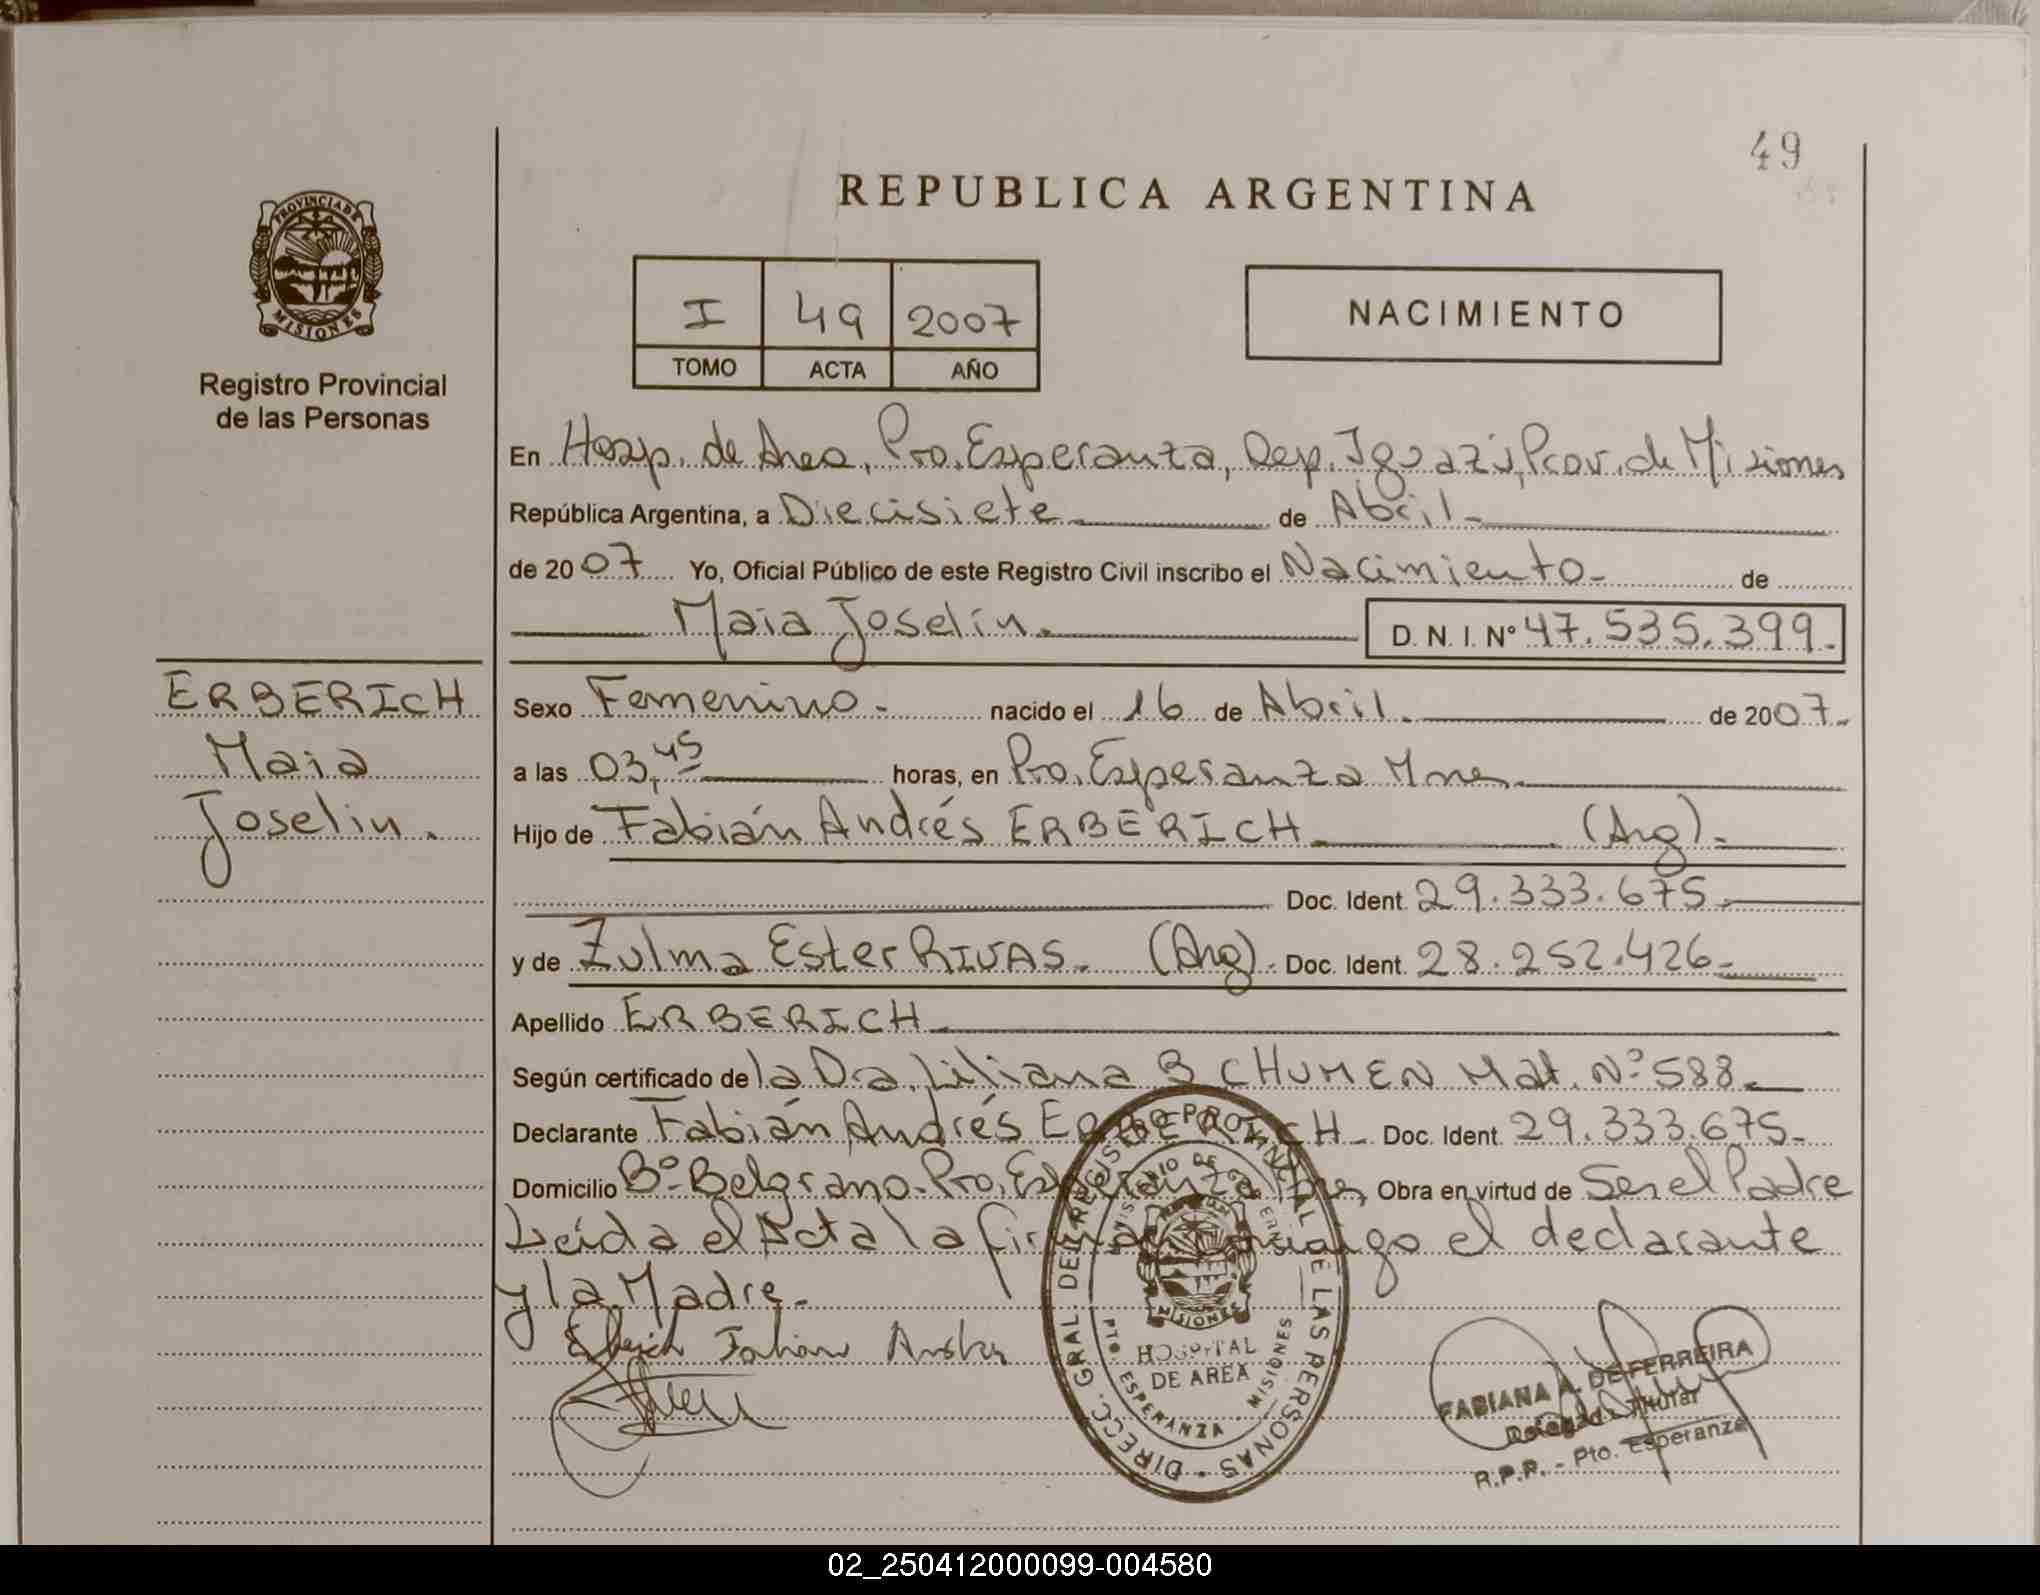 49
REPUBLICA ARGENTINA
PROVINCIA DE
MISIONES
Registro Provincial
de las Personas
I 49 2007
TOMO ACTA AÑO
NACIMIENTO
En Hosp. de Area, Pto. Esperanza, Dep. Iguazú, Prov. de Misiones
República Argentina, a Diecisiete de Abril
de 2007 Yo, Oficial Público de este Registro Civil inscribo el Nacimiento de
Maia Joselin. D. N. I. Nº 47.535.399.
ERBERICH
Maia
Joselin.
Sexo Femenino. nacido el 16 de Abril. de 2007.
a las 03,45 horas, en Pto. Esperanza Mnes.
Hijo de Fabián Andrés ERBERICH (Arg).
Doc. Ident. 29.333.675
y de Zulma Ester RIVAS. (Arg). Doc. Ident. 28.252.426
Apellido ERBERICH
Según certificado de la Dra. Liliana SCHUMEN Mat. Nº 588
Declarante Fabián Andrés ERBERICH Doc. Ident. 29.333.675
Domicilio Bº Belgrano. Pto. Esperanza Mnes, Obra en virtud de Ser el Padre
Leída el Acta la firman conmigo el declarante
y la Madre.
Fabian
DIRECC. GRAL. DEL REGISTRO PROVINCIAL DE LAS PERSONAS
MINISTERIO DE GOBIERNO
MISIONES
HOSPITAL
DE AREA
PTO. ESPERANZA - MISIONES
FABIANA A. DE FERREIRA
Delegada Titular
R.P.P. - Pto. Esperanza
02_250412000099-004580